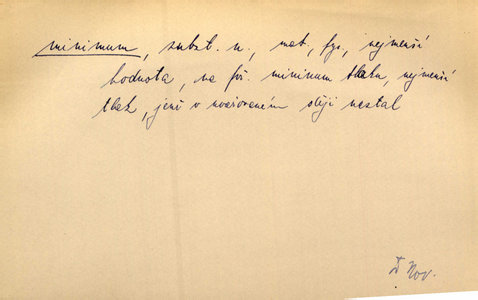 minimum, subst. n., mat., fys., nejmenší
hodnota, na př. minimum tlaku, nejmenší
tlak, jenž v uvažovaném ději nastal
Nov.